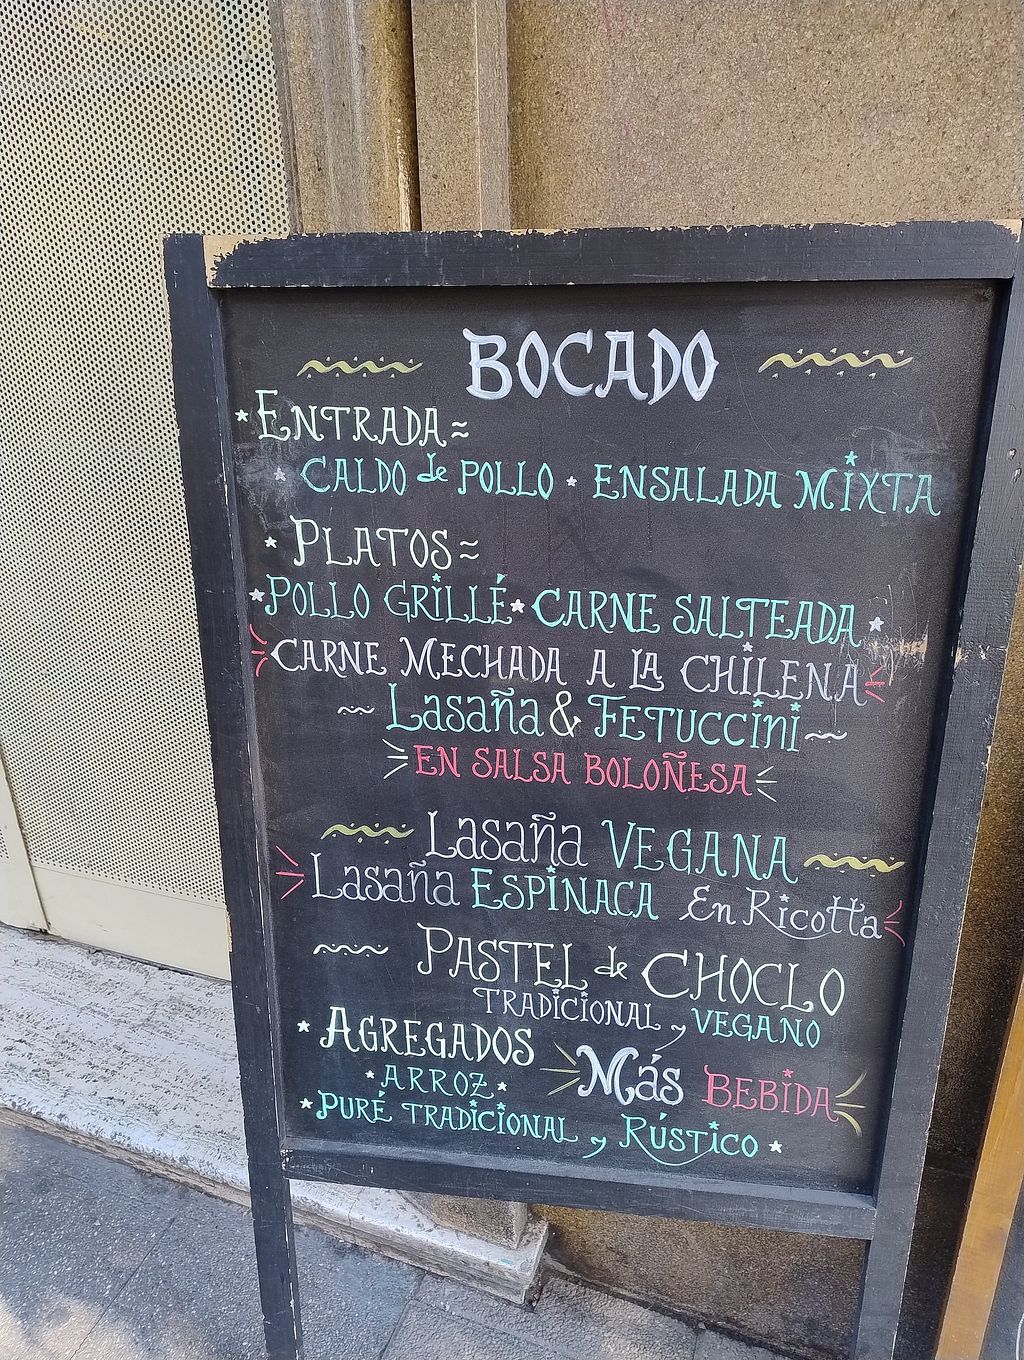 BOCADO
ENTRADA
CALDO de POLLO · ENSALADA MIXTA
PLATOS
POLLO GRILLÉ · CARNE SALTEADA
CARNE MECHADA A LA CHILENA
Lasaña & FETUCCini
EN SALSA BOLOÑESA
Lasaña VEGANA
Lasaña ESPINACA En Ricotta
PASTEL de CHOCLO
TRADICIONAL y VEGANO
AGREGADOS
ARROZ
Más BEBIDA
PURÉ TRADICIONAL y RÚSTICO